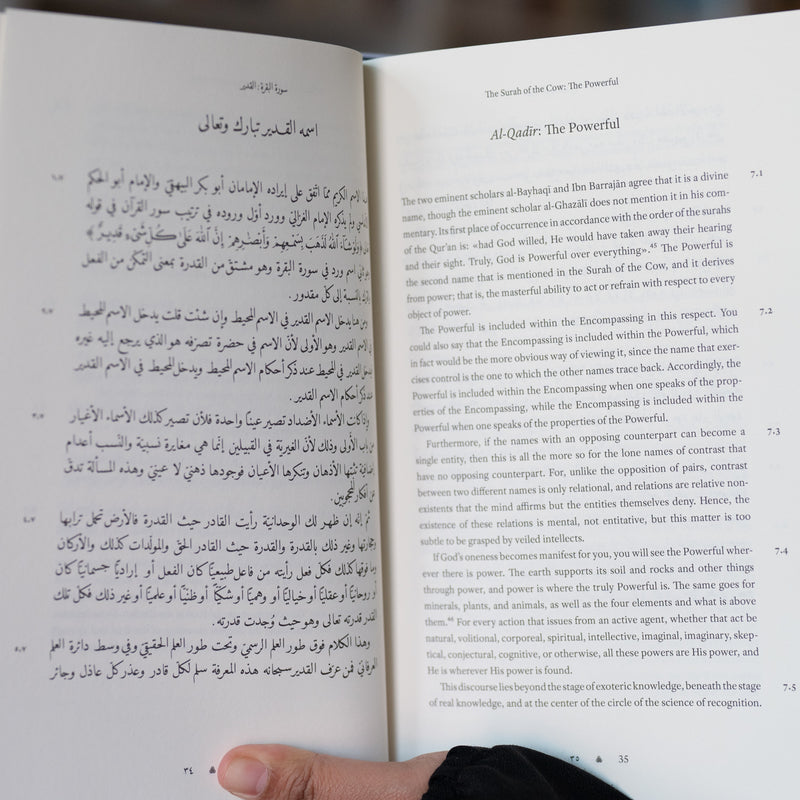 سورة البقرة: القدير
اسمه القدير تبارك وتعالى
٦،٧
الاسم الكريم ممّا اتّفق على إيراده الإمامان أبو بكر البيهقي والإمام أبو الحكم
ولم يذكره الإمام الغزالي وورد أوّل وروده في ترتيب سور القرآن في قوله
﴿وَلَوْ شَآءَ ٱللَّهُ لَذَهَبَ بِسَمْعِهِمْ وَأَبْصَٰرِهِمْ إِنَّ ٱللَّهَ عَلَىٰ كُلِّ شَىْءٍ قَدِيرٌ﴾
اسم ورد في سورة البقرة وهو مشتقّ من القدرة بمعنى التمكّن من الفعل
بالنسبة إلى كلّ مقدور.
يدخل الاسم القدير في الاسم المحيط وإن شئت قلت يدخل الاسم المحيط
الاسم القدير وهو الأولى لأنّ الاسم في حضرة تصرّفه هو الذي يرجع إليه غيره
القدير في المحيط عند ذكر أحكام الاسم المحيط ويدخل المحيط في الاسم القدير
ذكر أحكام الاسم القدير.
كانت الأسماء الأضداد تصير عينًا واحدة فلأن تصير كذلك الأسماء الأغيار
باب الأولى وذلك لأنّ الغيريّة في القبيلين إنّما هي مغايرة نسبيّة والنسب أعدام
تثبتها الأذهان وتنكرها الأعيان فوجودها ذهنيّ لا عينيّ وهذه المسألة تدقّ
عن أفكار المحجوبين.
ثمّ إنّه إن ظهر لك الوحدانيّة رأيت القادر حيث القدرة فالأرض تحمل ترابها
وحجارتها وغير ذلك بالقدرة والقدرة حيث القادر الحقّ والمولّدات كذلك والأركان
وما فوقها كذلك فكلّ فعل رأيته من فاعل طبيعيًّا كان الفعل أو إراديًّا جسمانيًّا كان
أو روحانيًّا أو عقليًّا أو خياليًّا أو وهميًّا أو شكّيًّا أو ظنّيًّا أو علميًّا أو غير ذلك فكلّ تلك
القدر قدرته تعالى وهو حيث وُجدت قدرته.
وهذا الكلام فوق طور العلم الرسميّ وتحت طور العلم الحقيقيّ وفي وسط دائرة العلم
العرفانيّ فمن عرف القدير سبحانه هذه المعرفة سلّم لكلّ قادر وعذر كلّ عاذل وجائر
٣٤
The Surah of the Cow: The Powerful
Al-Qadīr: The Powerful
The two eminent scholars al-Bayhaqī and Ibn Barrajān agree that it is a divine 7.1
name, though the eminent scholar al-Ghazālī does not mention it in his com-
mentary. Its first place of occurrence in accordance with the order of the surahs
of the Qurʾan is: «had God willed, He would have taken away their hearing
and their sight. Truly, God is Powerful over everything».⁴⁵ The Powerful is
the second name that is mentioned in the Surah of the Cow, and it derives
from power; that is, the masterful ability to act or refrain with respect to every
object of power.
The Powerful is included within the Encompassing in this respect. You 7.2
could also say that the Encompassing is included within the Powerful, which
in fact would be the more obvious way of viewing it, since the name that exer-
cises control is the one to which the other names trace back. Accordingly, the
Powerful is included within the Encompassing when one speaks of the prop-
erties of the Encompassing, while the Encompassing is included within the
Powerful when one speaks of the properties of the Powerful.
Furthermore, if the names with an opposing counterpart can become a 7.3
single entity, then this is all the more so for the lone names of contrast that
have no opposing counterpart. For, unlike the opposition of pairs, contrast
between two different names is only relational, and relations are relative non-
existents that the mind affirms but the entities themselves deny. Hence, the
existence of these relations is mental, not entitative, but this matter is too
subtle to be grasped by veiled intellects.
If God's oneness becomes manifest for you, you will see the Powerful wher- 7.4
ever there is power. The earth supports its soil and rocks and other things
through power, and power is where the truly Powerful is. The same goes for
minerals, plants, and animals, as well as the four elements and what is above
them.⁴⁶ For every action that issues from an active agent, whether that act be
natural, volitional, corporeal, spiritual, intellective, imaginal, imaginary, skep-
tical, conjectural, cognitive, or otherwise, all these powers are His power, and
He is wherever His power is found.
This discourse lies beyond the stage of exoteric knowledge, beneath the stage 7.5
of real knowledge, and at the center of the circle of the science of recognition.
٣٥ 35